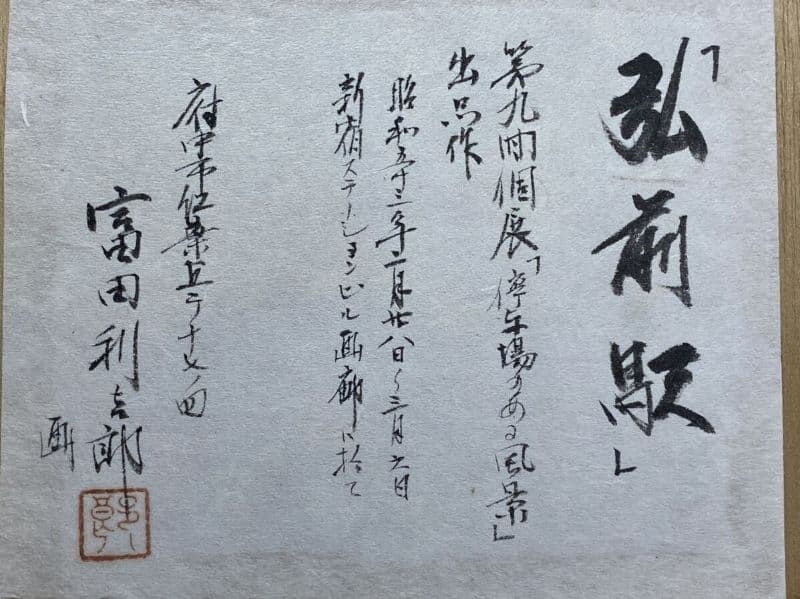 「弘前駅」
第九回個展「停車場のある風景」
出品作
昭和五十三年二月廿八日〜三月六日
新宿ステーションビル画廊に於て
府中市紅葉丘二ノ十七ノ四
富田利吉郎
画